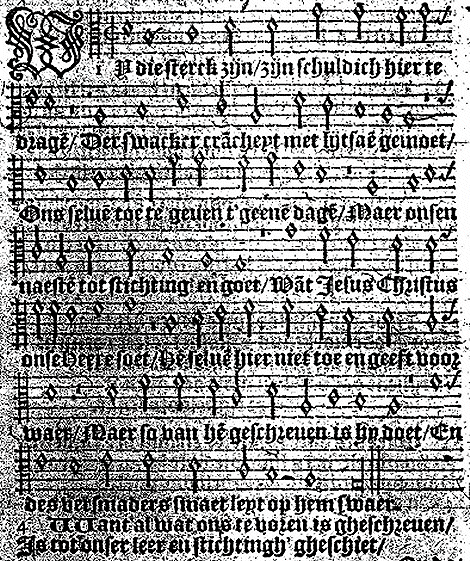 WY die sterck zijn/zijn schuldich hier te
dragē/ Der swacker crācheyt met lijtsaē gemoet/
Ons selvē toe te gevē t'geene dagē/ Maer onsen
naestē tot stichting' en goet/ Wāt Jesus Christus
onse Heere soet/ Hē selvē hier niet toe en geeft voor
waer/ Maer so van hē geschreven is hy doet/ En
des versmaders smaet leyt op hem swaer.
Want al wat ons te voren is gheschreven/
Is tot onser leer en stichtingh' gheschiet/